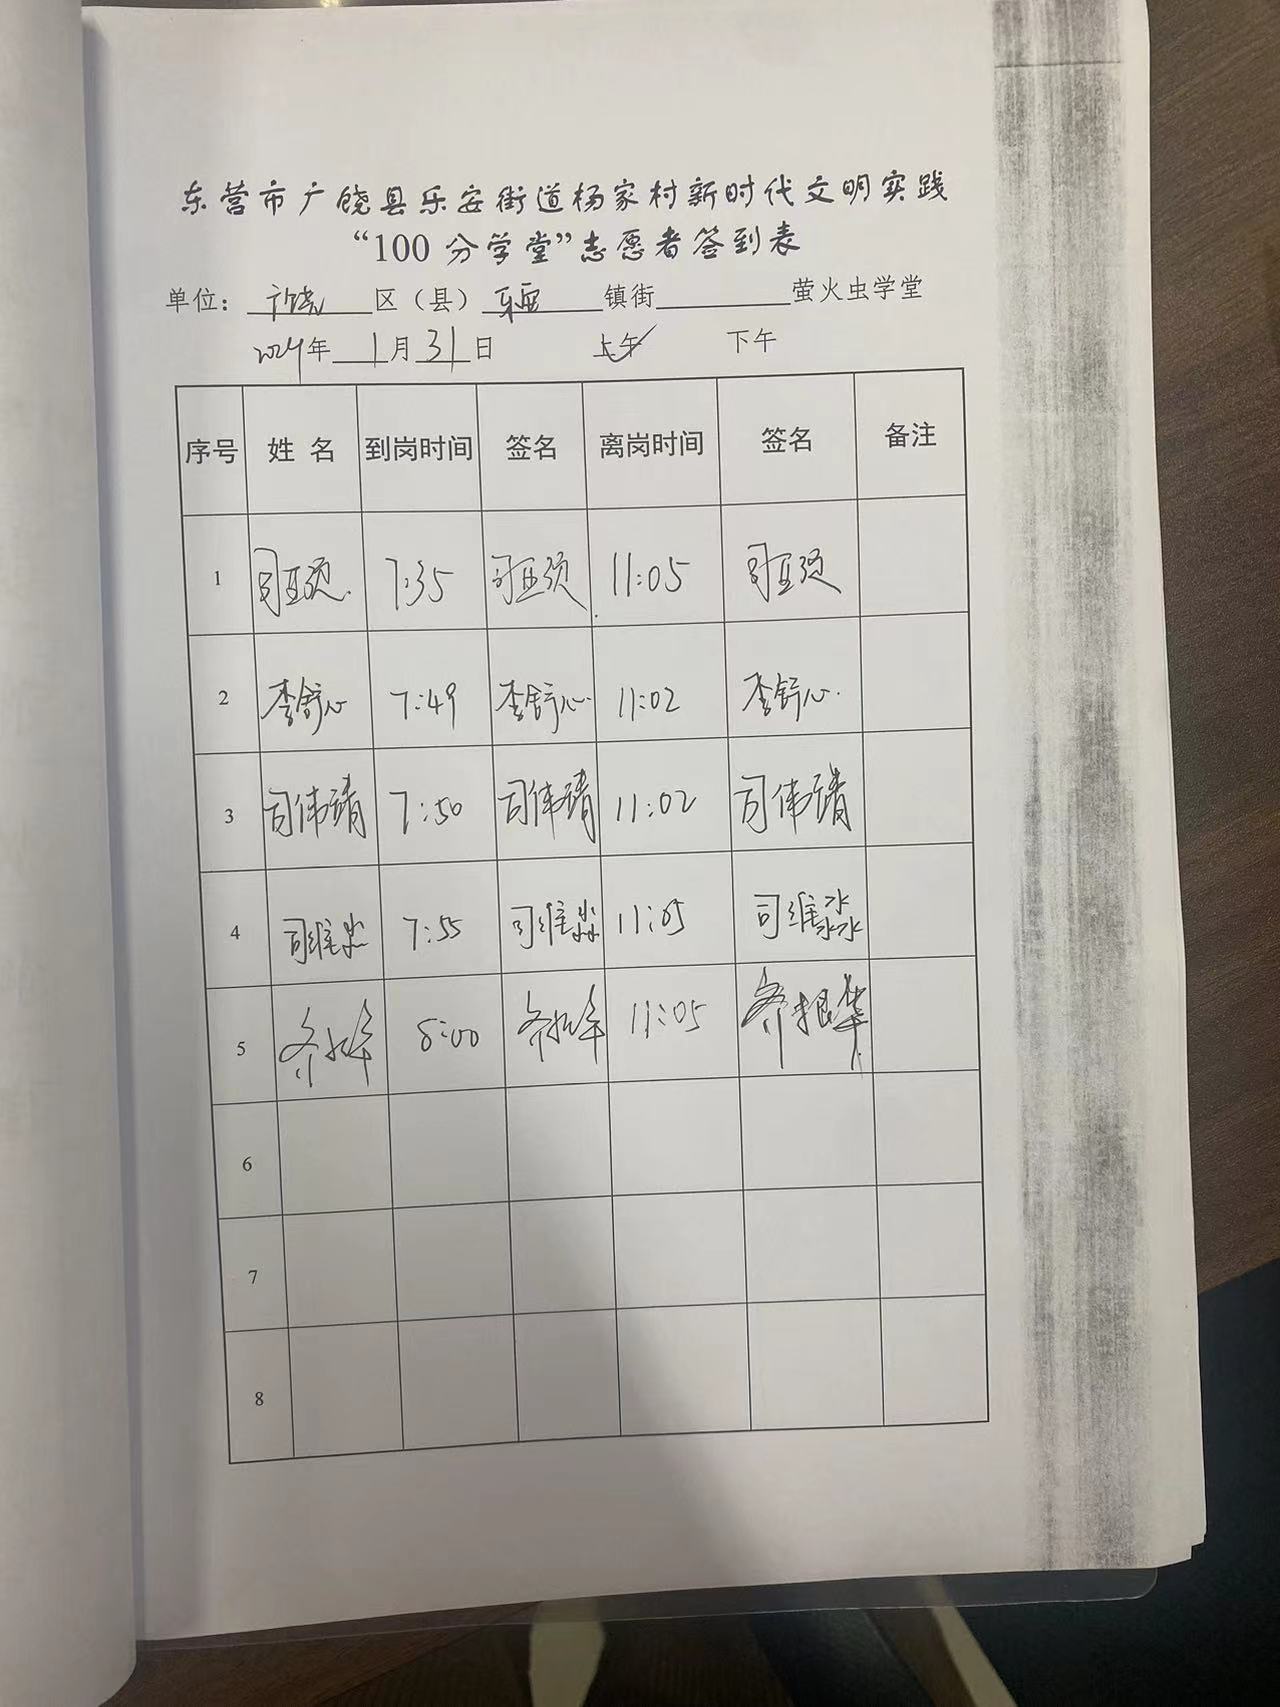 东营市广饶县乐安街道杨家村新时代文明实践
“100分学堂”志愿者签到表
单位： 广饶 区（县） 乐安 镇街 萤火虫学堂
2024年 1月 31日 上午 下午
序号 姓名 到岗时间 签名 离岗时间 签名 备注
1 司亚 7:35 司亚 11:05 司亚
2 李舒心 7:49 李舒心 11:02 李舒心
3 司伟靖 7:50 司伟靖 11:02 司伟靖
4 司维淼 7:55 司维淼 11:05 司维淼
5 8:00 11:05
6
7
8